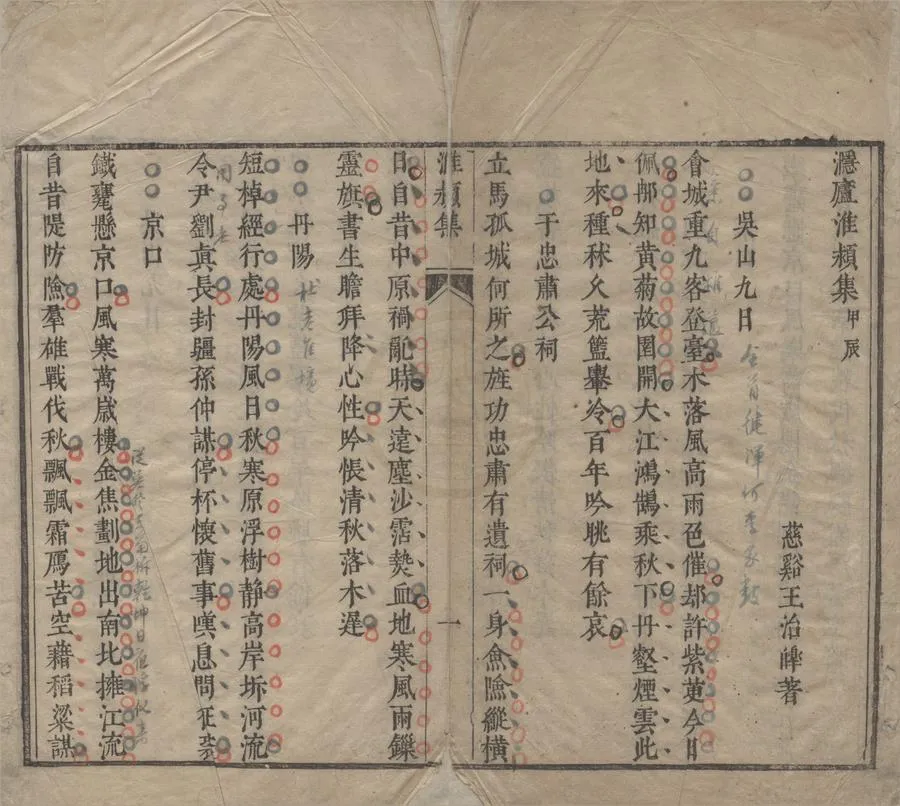 濦廬淮潁集 甲辰
慈谿王治皞著
吳山九日
會城重九客登臺木落風高雨色催却許紫萸今日
佩那知黃菊故園開大江鴻鵠乘秋下丹壑煙雲此
地來種秫久荒籃轝冷百年吟眺有餘哀
于忠肅公祠
立馬孤城何所之旌功忠肅有遺祠一身魚險縱橫
淮潁集
一
日自昔中原禍亂時天遠塵沙霑熱血地寒風雨鑠
靈旗書生瞻拜降心性吟悵清秋落木遲
丹陽
短棹經行處丹陽風日秋寒原浮樹靜高岸坼河流
令尹劉真長封疆孫仲謀停杯懷舊事嘆息問征裘
京口
鐵甕懸京口風寒萬歲樓金焦劃地出南北擁江流
自昔隄防險羣雄戰伐秋飄飄霜鴈苦空藉稻粱謀